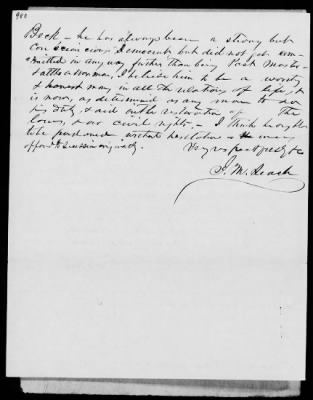 Back - he has always been a strong but
consciencious Democrat but did not get com-
mitted in any way further than being Post Master -
I believe him to be a worthy
& honest man, in all the relations of life &
is now, as determined as any man to do
his duty, & aid in the restoration of The
laws, & our civil rights, - I think he ought
to be pardoned without hesitation -
opposed to secession originally.
Very respectfully &c
J. M. Leach